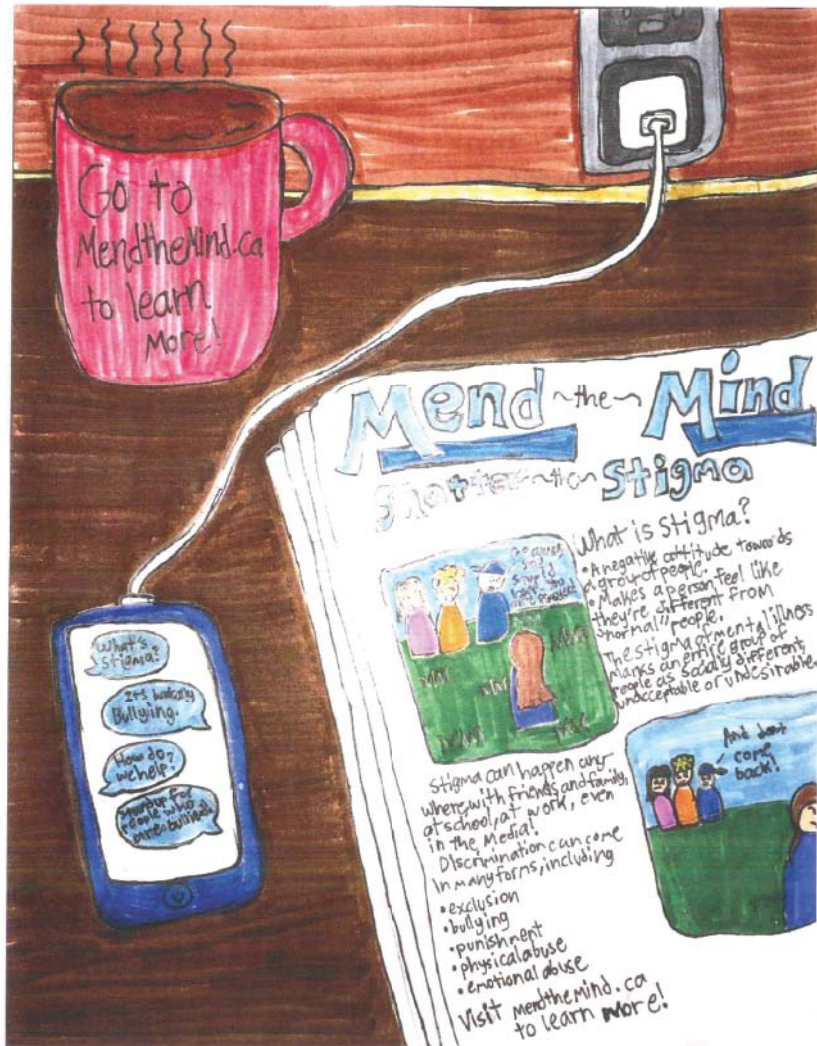 Go to
MendtheMind.ca
to learn
More!
Mend ~the~ Mind
Shatter ~the~ Stigma
What is Stigma?
• A negative attitude towards
a group of people.
• Makes a person feel like
they're different from
"normal" people.
The stigma of mental illness
Marks an entire group of
people as socially different,
unacceptable or undesirable.
Go away
And don't
come
back!
Stigma can happen any-
where, with friends and family,
at school, at work, even
in the Media!
Discrimination can come
in many forms, including
• exclusion
• bullying
• punishment
• physical abuse
• emotional abuse
Visit mendthemind.ca
to learn more!
What's
stigma?
It's basically
Bullying.
How do
we help?
Standup for
people who
are bullied!